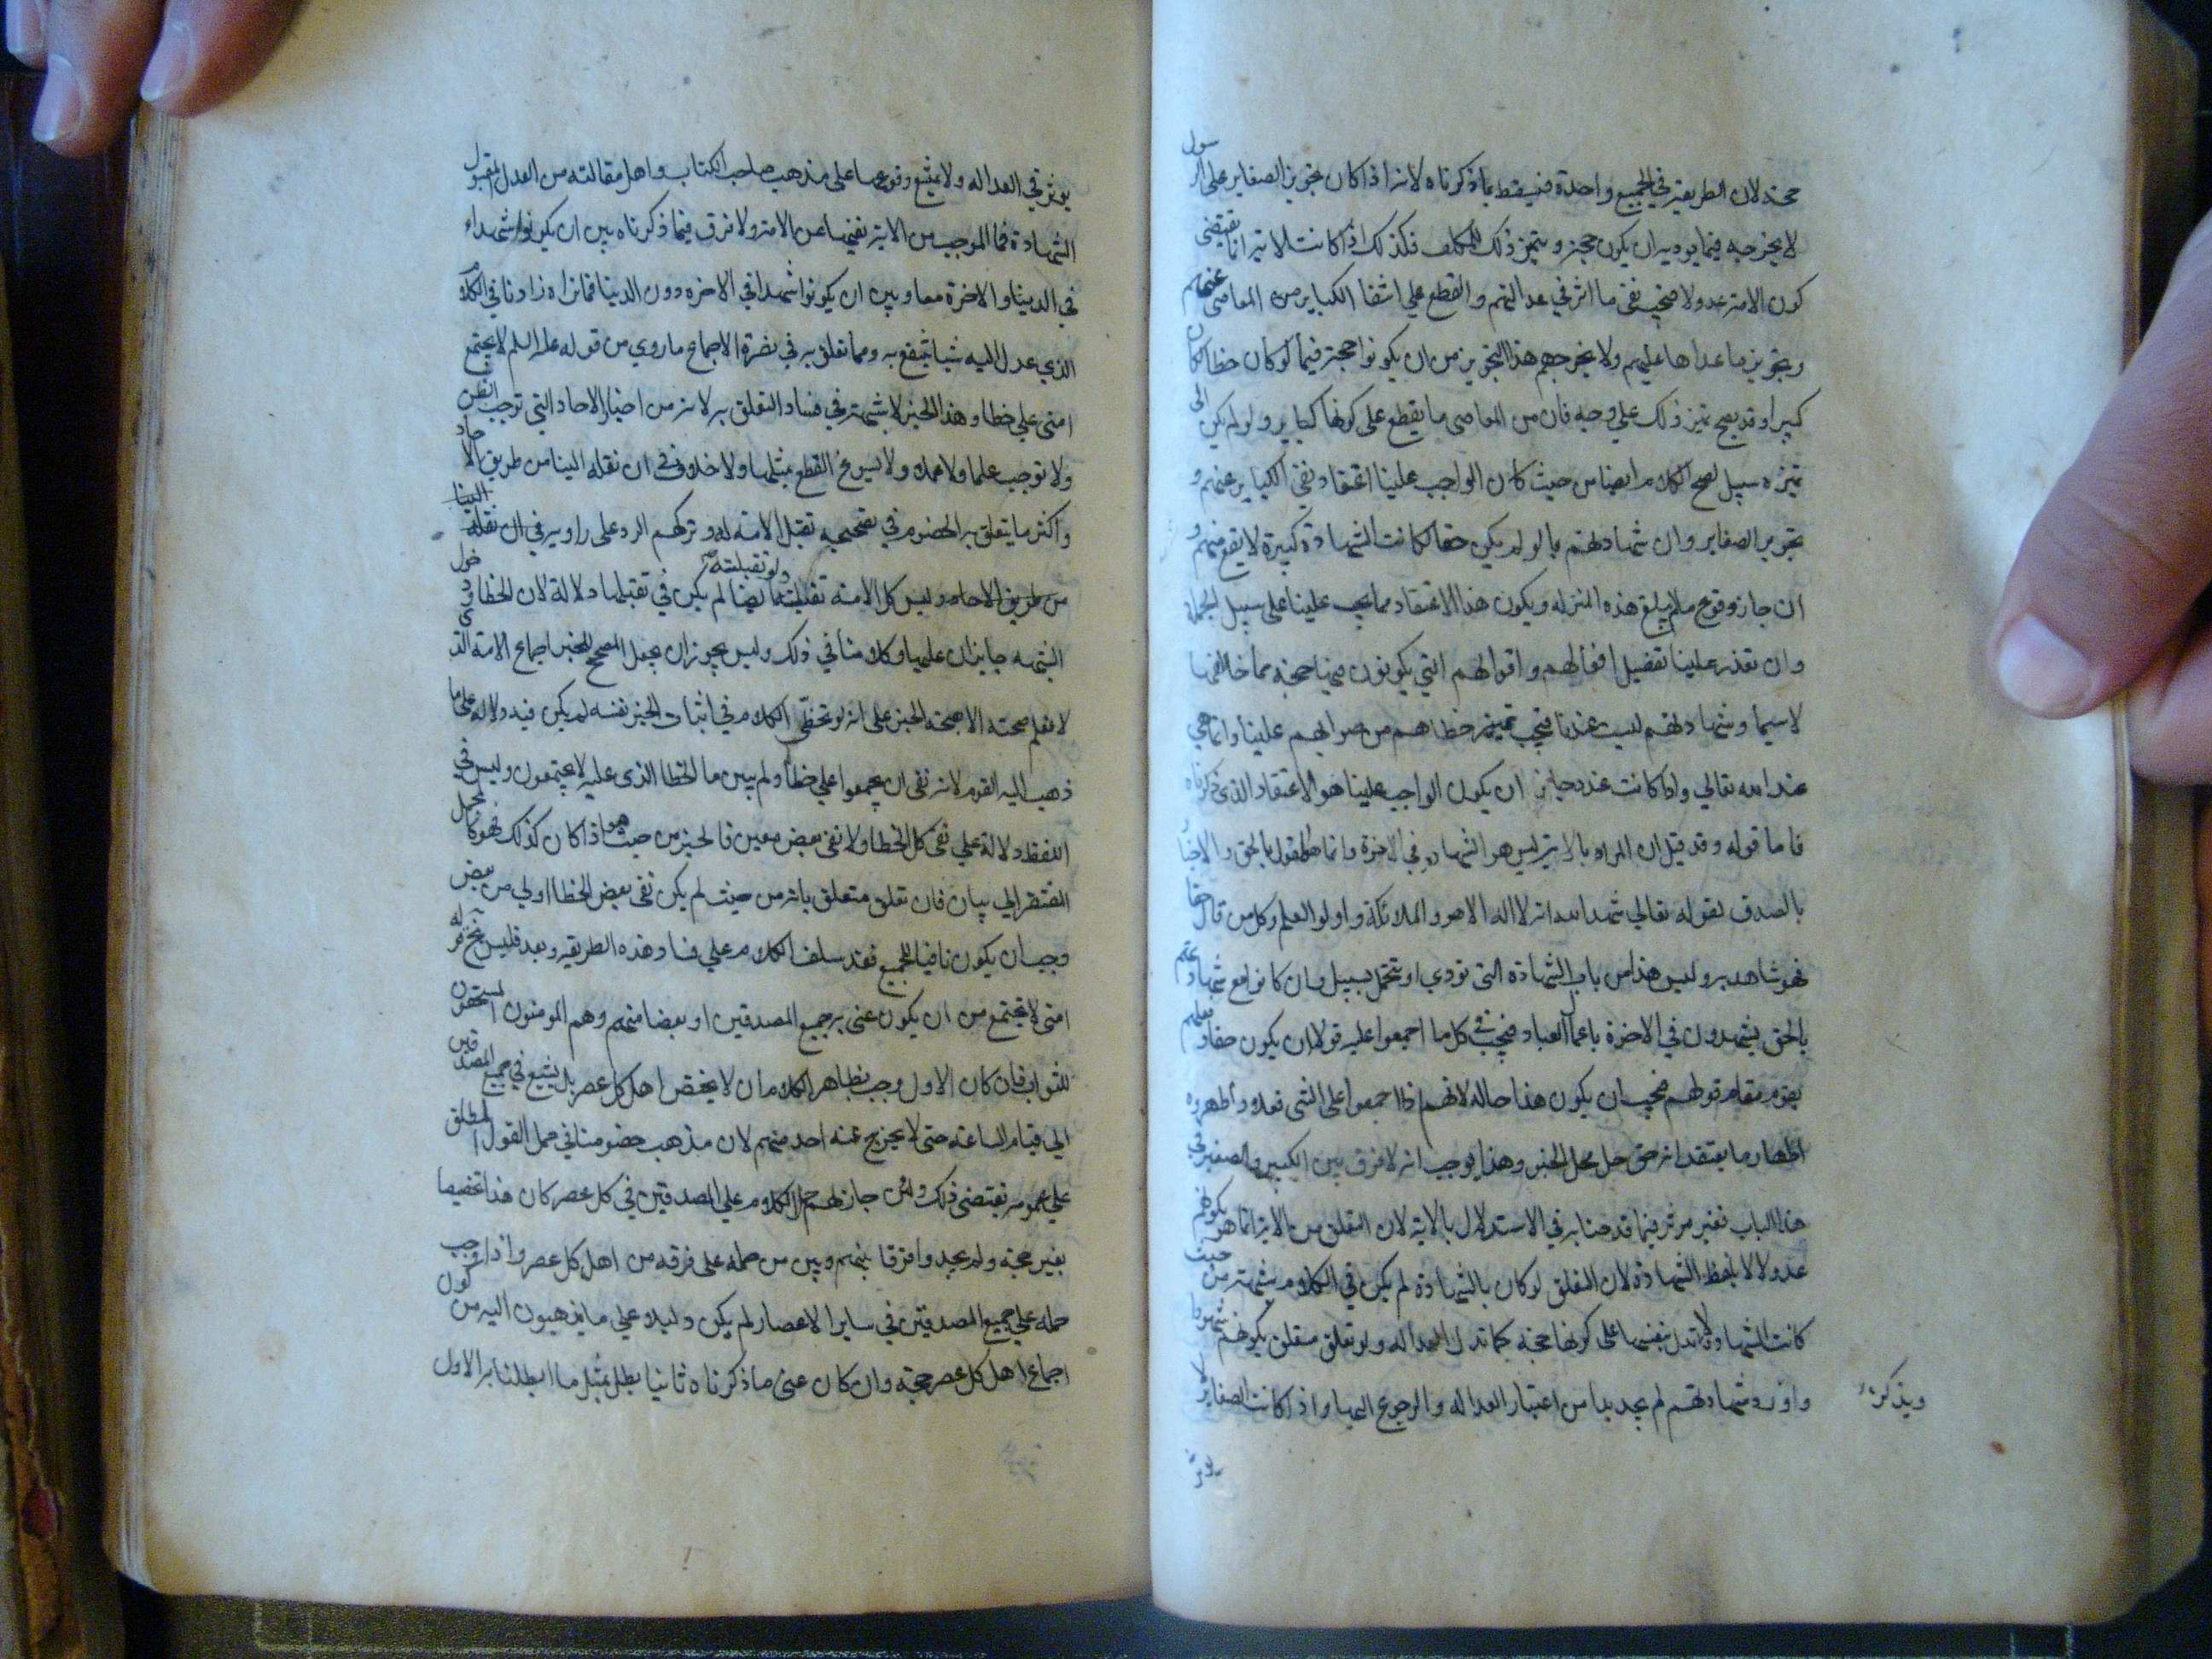 حجة لان الطريقة في الجميع واحدة فيسقط بما ذكرناه لانه اذا كان تجويز الصغاير على الرسول
لا يخرجه فيما يوديه ان يكون حجة ويتميز ذلك للمكلف فكذلك اذا كانت الاية انما تقتضى
كون الامة عدولا فيجب نفى ما اثر في عدالتهم والقطع على انتفا الكباير من المعاصى عنهم
وتجويز ما عداها عليهم ولا يخرجهم هذا التجويز من ان يكونوا حجة فيما لو كان خطا لكان
كبيرا وقد يصح تميز ذلك على وجه فان من المعاصى ما يقطع على كونها كباير ولو لم يكن الى
تميزه سبيل لصح الكلام ايضا من حيث كان الواجب علينا اعتقاد نفى الكباير عنهم و
تجويز الصغاير وان شهادتهم بما لو لم يكن حقا لكانت الشهادة كبيرة لا يقع منهم و
ان جاز وقوع مالم يبلغ هذه المنزله ويكون هذا الاعتقاد مما يجب علينا على سبيل الجملة
وان تعذر علينا تفصيل افعالهم واقوالهم التي يكونون فيها حجة مما خالفها
لا سيما وشهادتهم ليست عندنا فيجب تمييز خطاهم من صوابهم علينا وانما هي
عند الله تعالى واذا كانت عنده جايز ان يكون الواجب علينا هو الاعتقاد الذى ذكرناه
فاما قوله وقد قيل ان المراد بالاية ليس هو الشهادة في الاخرة وانما هو القول بالحق والاخبار
بالصدق لقوله تعالي شهد الله انه لا اله الا هو والملائكة واولوا العلم وكل من قال حقا
فهو شاهد به وليس هذا من باب الشهادة التى تودي او تتحمل بسبيل وان كانوا مع شهادتهم
بالحق يشهدون في الاخرة باعمال العباد فيجب في كل ما اجمعوا عليه قولا ان يكون حقا وفعلهم
يقوم مقام قولهم فيجب ان يكون هذا حاله لانهم اذا اجمعوا على الشى فعلا واظهروه
اظهار ما يعتقد انه حق حل محل الخبر وهذا يوجب انه لا فرق بين الكبير والصغير في
هذا الباب فغير موثر فيما قدمنا به في الاستدلال بالاية لان التعلق من الاية انما هو بكونهم
عدولا لا بلفظ الشهادة لان التعلق لو كان بالشهادة لم يكن في الكلام شبهة من حيث
كانت الشهادة لا تدل بنفسها على كونها حجة كما تدل العدالة ولو تعلق متعلق بكونهم شهودا
ويذكر
واورد شهادتهم لم يجد بدا من اعتبار العداله والرجوع اليها واذا كانت الصغاير لا
يوثر
يوثر في العداله ولا يمتنع وقوعها على مذهب صاحب الكتاب واهل مقالته من العدل المقبول
الشهادة فما الموجب من الاية نفيها عن الامة ولا فرق فيما ذكرناه بين ان يكونوا شهداء
في الدينا والاخرة معا وبين ان يكونوا شهدا في الاخره دون الدنيا فما نراه زادنا في الكلام
الذي عدل اليه شيا ينتفع به ومما تعلق به في نصرة الاجماع ما روي من قوله عليه السلم لا يجتمع
امتى على خطا وهذا الخبر لا شبهة في فساد التعلق به لانه من اخبار الاحاد التي توجب الظن
ولا توجب علما ولا عملا ولا يسوغ القطع بمثلها ولا خلاف في ان نقله الينا من طريق الاحاد
واكثر ما يتعلق به الخصوم في تصحيحه تقبل الامة له وتركهم الرد على راويه في ان نقله الينا
من طريق الاحاد وليس كل الامة تقبلته ولو تقبلته ايضا لم يكن في تقبلها دلالة لان الخطا ودخول
الشبهه جايزان عليها وكلامنا في ذلك وليس يجوز ان يجعل المصحح للخبر اجماع الامة الذى
لا نعلم صحته الا بصحة الخبر على انه لو تخطى الكلام في اثبات الخبر نفسه لم يكن فيه دلاله على ما
ذهب اليه القوم لانه نفى ان يجمعوا على خطا ولم يبين ما الخطا الذى عليه لا يجتمعون وليس في
اللفظ دلالة على نفى كل الخطا ولا نفى بعض معين فالخبر من حيث هو اذا كان كذلك فهو كالمجمل
المفتقر الي بيان فان تعلق متعلق بانه من حيث لم يكن نفى بعض الخطا اولي من بعض
وجب ان يكون نافيا للجميع فقد سلف الكلام على فساد هذه الطريقه وبعد فليس يخ قوله
امتى لا يجتمع من ان يكون عنى به جميع المصدقين او بعضا منهم وهم المومنون المستحقون
للثواب فان كان الاول وجب بظاهر الكلام ان لا يختص اهل كل عصر بل يشيع في جميع المصدقين
الي قيام الساعة حتى لا يخرج عنه احد منهم لان مذهب خصومنا في حمل القول المطلق
على عمومه يقتضى ذلك ولئن جاز لهم حمل الكلام على المصدقين في كل عصر كان هذا تخصيصا
بغير حجة ولم يجدوا فرقا بينهم وبين من حمله على فرقه من اهل كل عصر واذا وجب
حمله على جميع المصدقين في ساير الاعصار لم يكن دليلا على ما يذهبون اليه من كون
اجماع اهل كل عصر حجة وان كان عنى ما ذكرناه ثانيا بطل بمثل ما ابطلنا به الاول